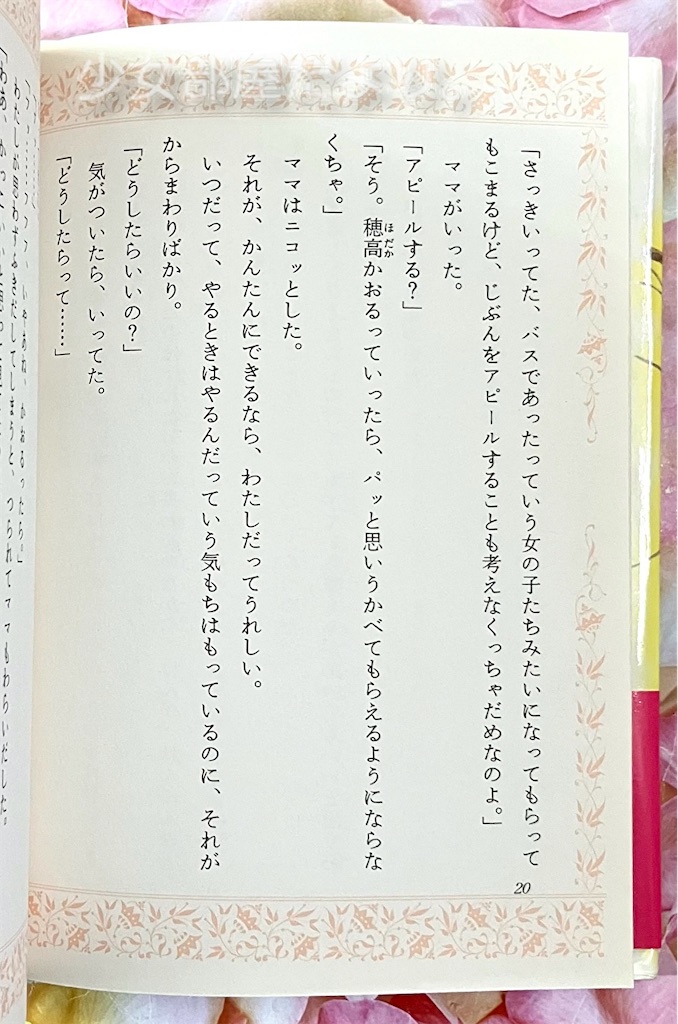 少女部屋
「さっきいってた、バスであったっていう女の子たちみたいになってもらって
もこまるけど、じぶんをアピールすることも考えなくっちゃだめなのよ。」
ママがいった。
「アピールする?」
「そう。穂高かおるっていったら、パッと思いうかべてもらえるようにならな
くちゃ。」
ママはニコッとした。
それが、かんたんにできるなら、わたしだってうれしい。
いつだって、やるときはやるんだっていう気もちはもっているのに、それが
からまわりばかり。
「どうしたらいいの?」
気がついたら、いってた。
「どうしたらって……」
20
いやあね、かおるったら。」
わたしが思わずふきだしてしまうと、つられてママもわらいだした。